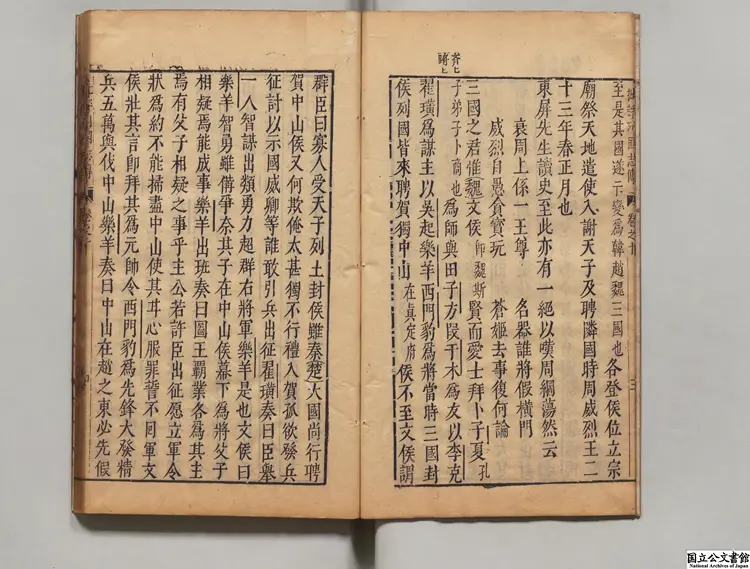 至是其國遂三下變爲韓趙魏三國也各登侯位立宗
廟祭天地遣使入謝天子及聘隣國時周威烈王二
十三年春正月也
東屏先生讀史至此亦有一絕以嘆周綱蕩然云
衰周上係一王尊 名器誰將假橫門
威烈自愚貪寶玩 蒼姬去事復何論
三國之君惟魏文侯卽魏斯賢而愛士拜卜子夏孔
子弟子卜商也爲師與田子方叚于木爲友以李克
翟璜爲謀主以吳起樂羊西門豹爲將當時三國封
侯列國皆來聘賀獨中山在真定府侯不至文侯謂
群臣曰寡人受天子列土封侯雖秦楚大國尚行聘
賀中山侯又何欺俺太甚獨不行禮入賀孤欲發兵
征討以示國威卿等誰敢引兵出征翟璜奏曰臣舉
一人智謀出類勇力超群右將軍樂羊是也文侯曰
樂羊智勇雖備爭奈其子在中山侯幕下爲將父子
相疑焉能成事樂羊出班奏曰圖王覇業各爲其主
焉有父子相疑之事乎主公若許臣出征愿立軍令
狀爲約不能掃盡中山使其耳心服罪誓不囘軍文
侯壯其言卽拜其爲元帥令西門豹爲先鋒大發精
兵五萬與伐中山樂羊奏曰中山在趙之東必先假
國立公文書館
National Archives of Japan